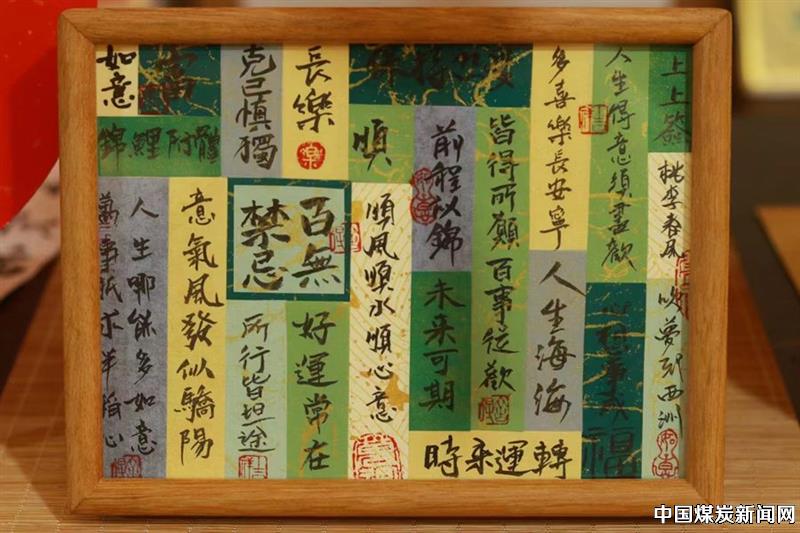 上上签
桃李春風
吹夢到西洲
人生得意須盡歡
福
多喜樂長安寧
人生海海
皆得所願
百事從歡
前程似錦
未来可期
順
順風順水順心意
時来運轉
長樂
百無
禁忌
好運常在
克己慎獨
所行皆坦途
富
錦鯉附體
意氣風發似驕陽
如意
人生哪能多如意
萬事祇求半稱心
中国煤炭新闻网